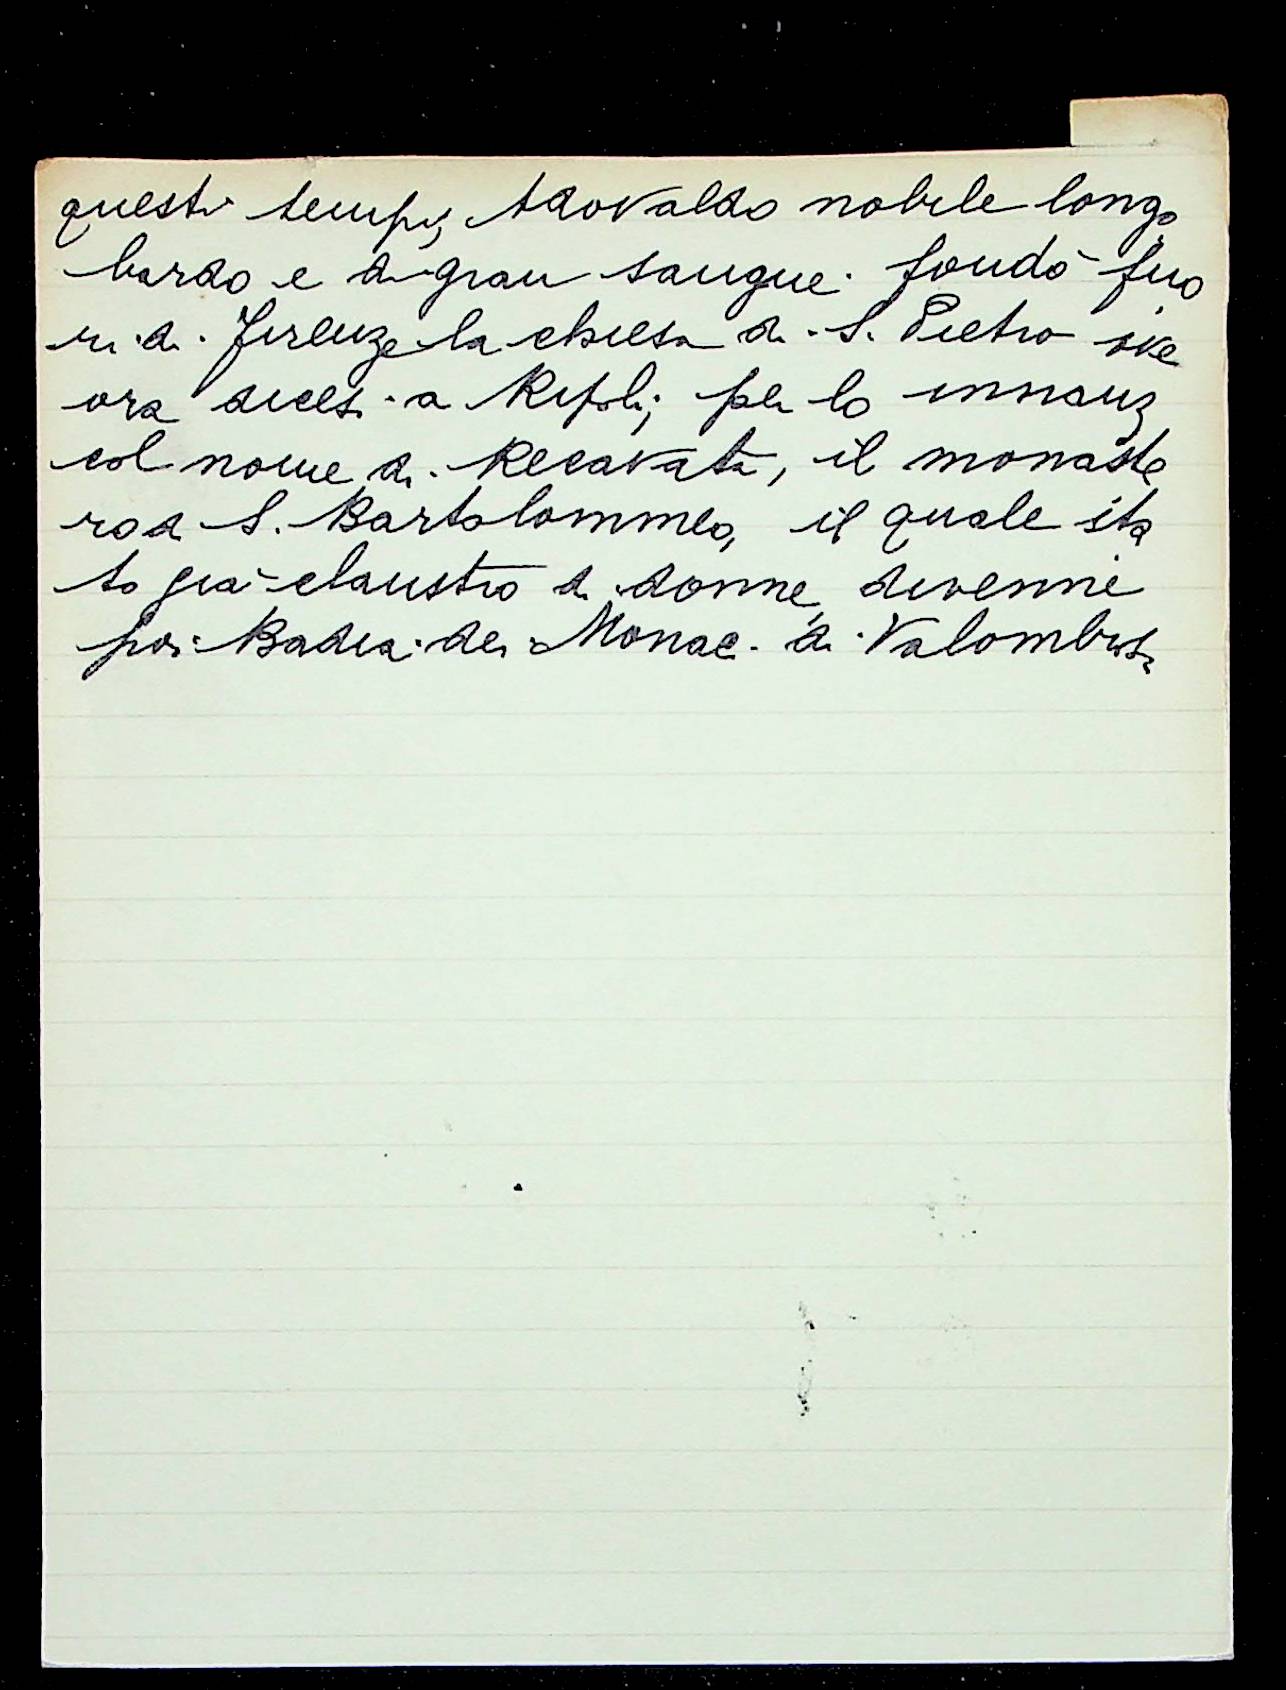 questi tempi, Adovaldo nobile longo
bardo e di gran sangue. fondò fuo
ri di Firenze la chiesa di S. Pietro ove
ora dicesi a Ripoli; per lo innanz
col nome di Recavata, il monaste
ro di S. Bartolommeo, il quale sta
to già claustro di donne, divenne
poi Badia dei Monac. di Valombrosa